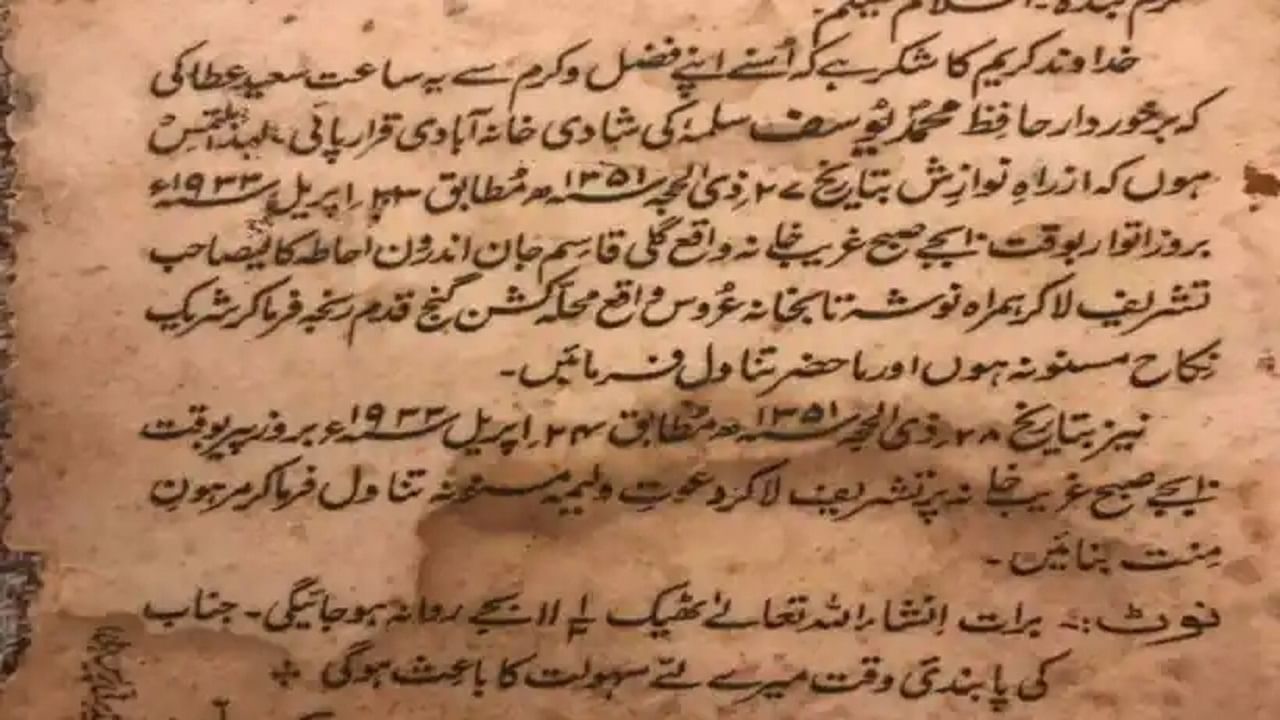 خداوند کریم کا شکر ہے کہ اُسنے اپنے فضل وکرم سے یہ ساعت سعید عطا کی
کہ برخوردار حافظ محمد یوسف سلمہٗ کی شادی خانہ آبادی قرار پائی۔ لہٰذا ملتمس
ہوں کہ ازراہِ نوازش بتاریخ ۲۷ ذی الحجہ سنہ ۱۳۵۱ھ مُطابق ۲۳ اپریل سنہ ۱۹۳۳ء
بروز اتوار بوقت ۱۰ بجے صبح غریب خانہ واقع گلی قاسم جان اندرون احاطہ کالیصاحب
تشریف لاکر ہمراہ نوشہ تا بخانہ عُروس واقع محلہ کشن گنج قدم رنجہ فرماکر شریک
نِکاح مسنونہ ہوں اور ماحضر تناول فرمائیں۔
نیز بتاریخ ۲۸ ذی الحجہ سنہ ۱۳۵۱ھ مُطابق ۲۴ اپریل سنہ ۱۹۳۳ء بروز پیر بوقت
۱۰ بجے صبح غریب خانہ پر تشریف لاکر دعوتِ ولیمہ مسنونہ تناول فرماکر مرہونِ
مِنت بنائیں۔
نوٹ:۔ برات اِنشاء اللہ تعالےٰ ٹھیک ۱۱ ۱/۲ بجے روانہ ہوجائیگی۔ جناب
کی پابندی وقت میرے لئے سہولت کا باعث ہوگی